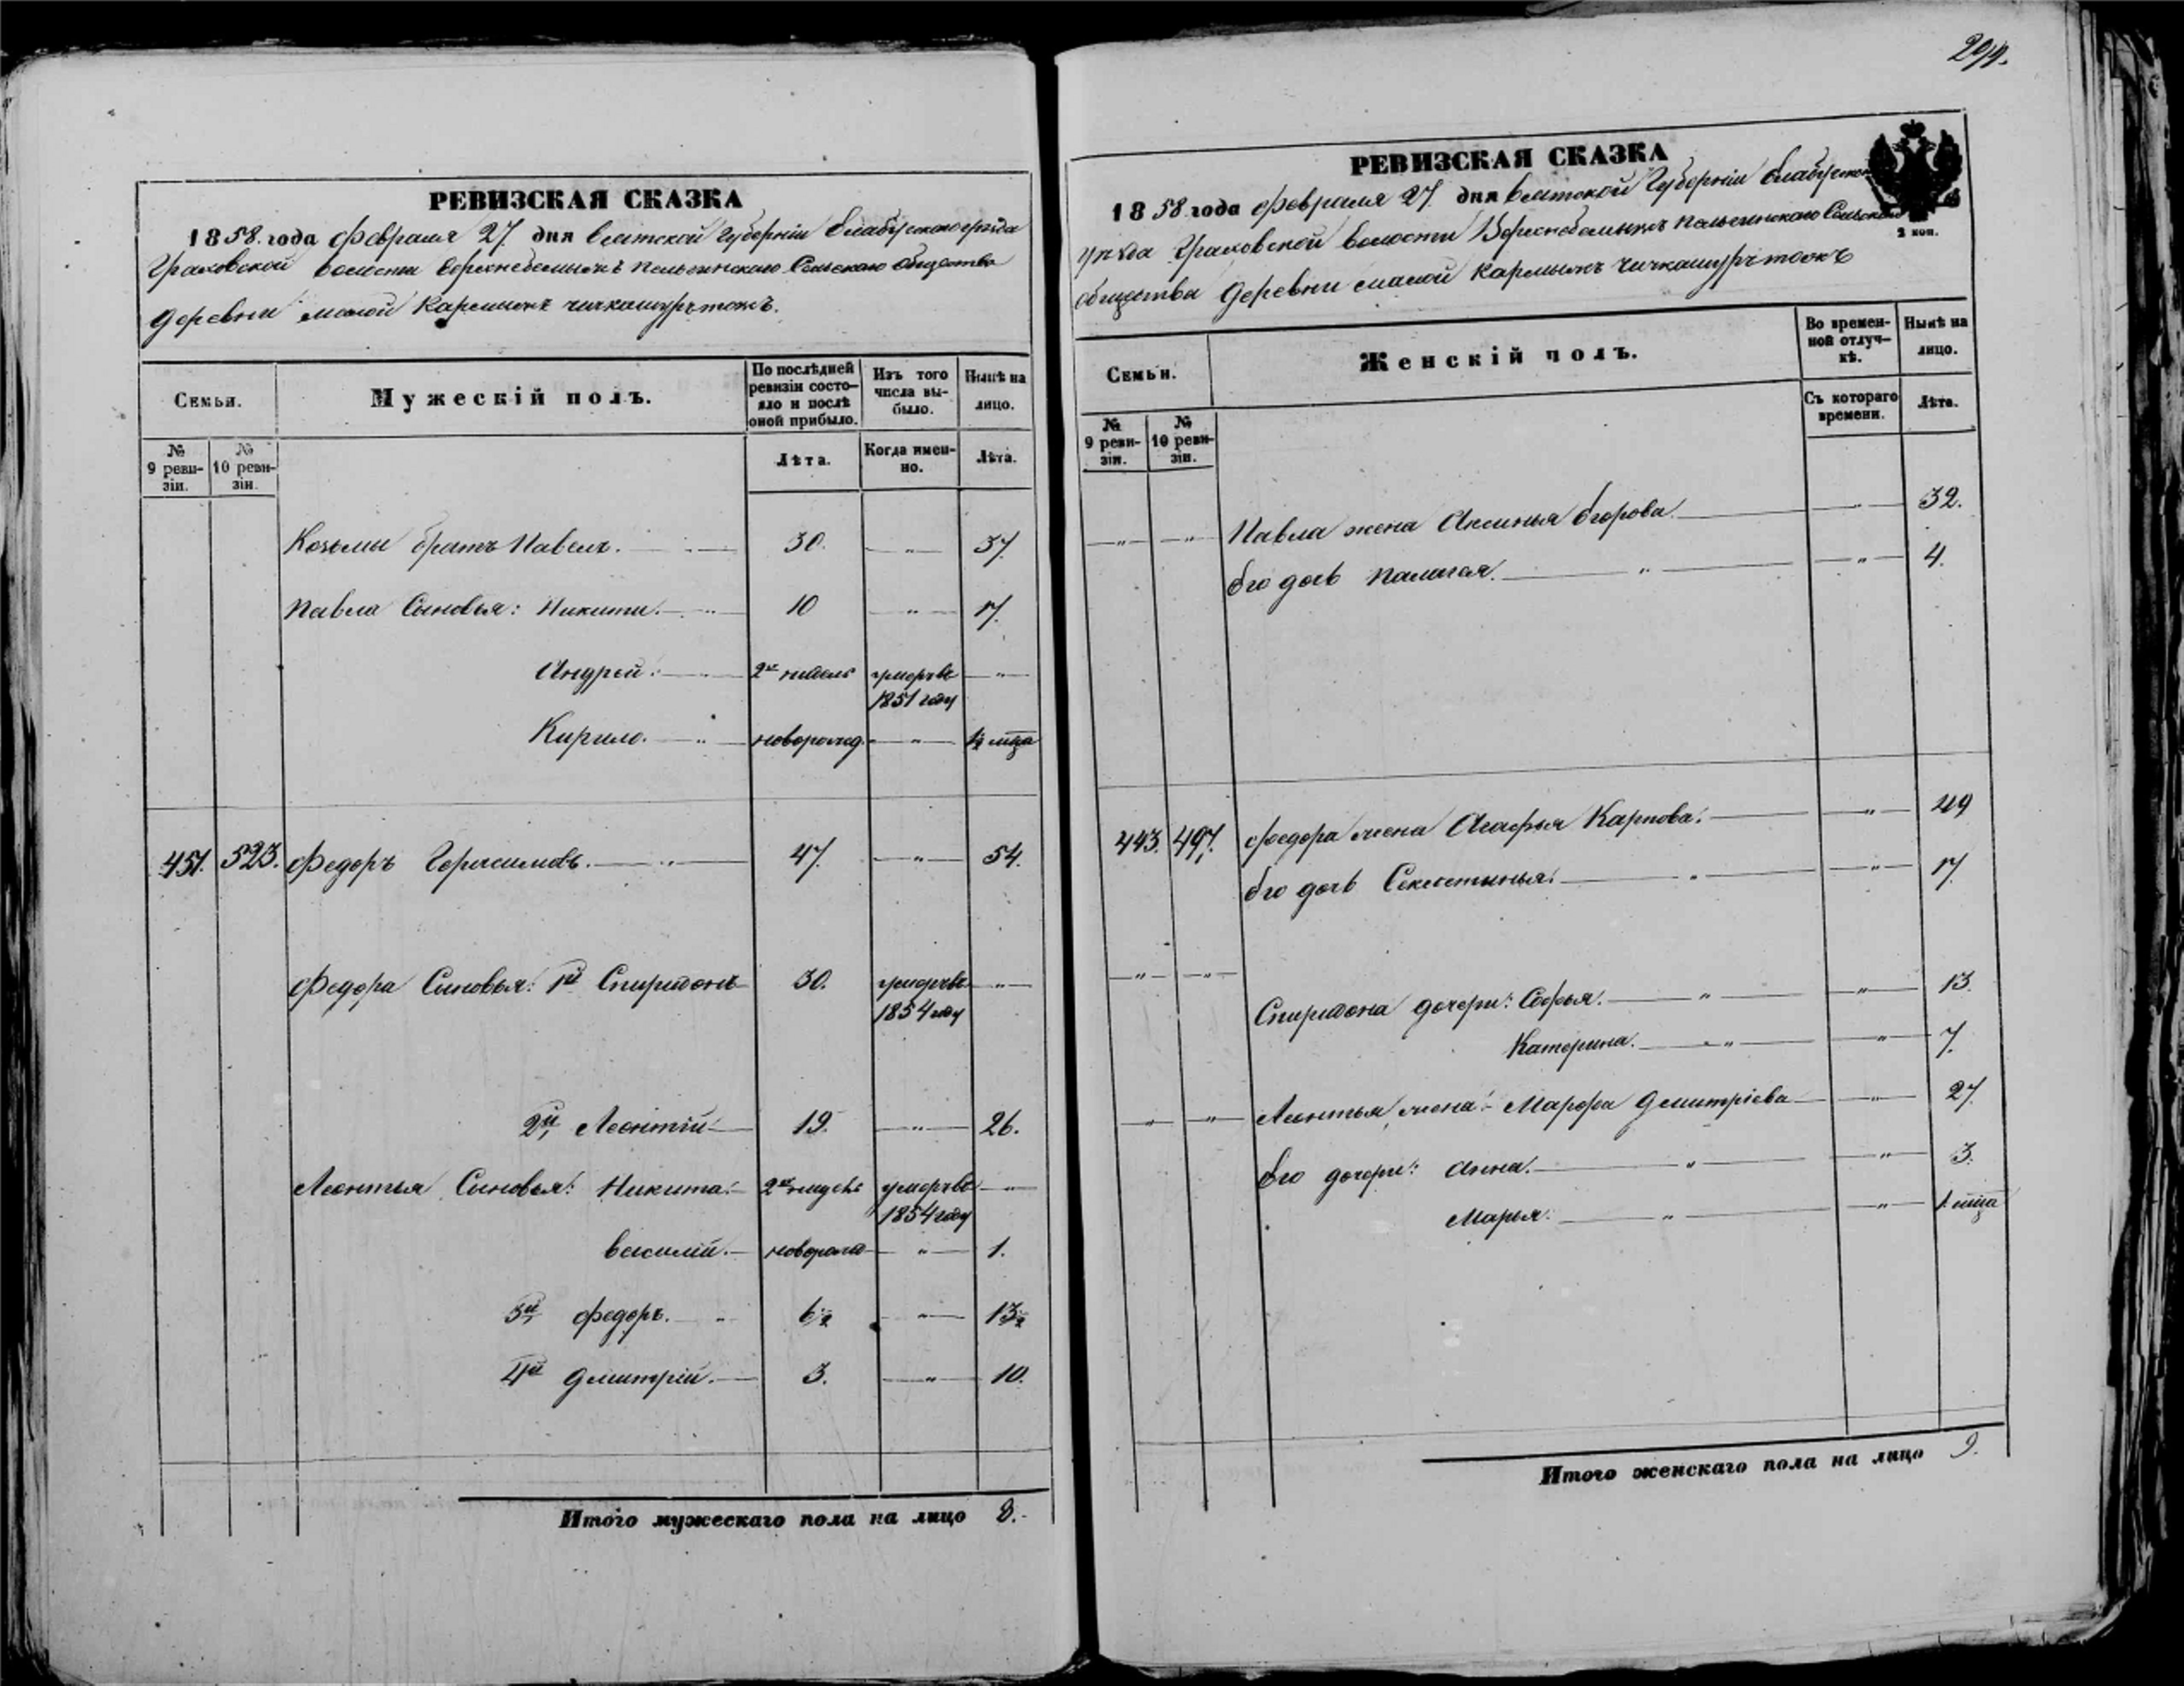 294.
РЕВИЗСКАЯ СКАЗКА
1858. года февраля 27. дня Вятской Губерніи Елабускаго уѣзда
Граховской волости Верхнебемыжъ Пельгинскаго Сельскаго общества
деревни малой Кармыжъ чичкашуръ тожъ.
Семьи.
Мужескій полъ.
По послѣдней ревизіи состояло и послѣ оной прибыло.
Изъ того числа выбыло.
Нынѣ на лицо.
№ 9 ревизіи.
№ 10 ревизіи.
Лѣта.
Когда именно.
Лѣта.
Козьмы братъ Павелъ. 30. „ 37.
Павла Сыновья: Никита. „ 10 „ 17.
Андрей. 2хъ недель умеръ въ „
1851 году
Кирило. „ новорожд. „ 1½ мца
451. 523. Федоръ Герасимовъ. „ 47. „ 54.
Федора Сыновья: 1й Спиридонъ 30. умеръ въ „
1854 году
2й Леонтій 19. „ 26.
Леонтья Сыновья: Никита. 2хъ умеръ въ „
1854 году
Василій. новорожд „ 1.
3й Федоръ. „ 6½ „ 13½
4й Дмитрій. 3. „ 10.
Итого мужескаго пола на лицо 8.
РЕВИЗСКАЯ СКАЗКА
1858 года февраля 27. дня Вятской Губерніи Елабуского
уѣзда Граховской волости Верхнебемыжъ Пельгинскаго Сельскаго
2 коп.
общества деревни малой Кармыжъ чичкашуръ тожъ
Семьи.
Женскій полъ.
Во временной отлучкѣ.
Нынѣ на лицо.
№ 9 ревизіи.
№ 10 ревизіи.
Съ котораго времени.
Лѣта.
„ „ Павла жена Аксинья Егорова. „ 32.
Его дочь Палагея. „ „ 4.
443. 497. Федора жена Агафья Карпова. „ 49
Его дочь Секлетинья. „ „ 17.
„ „
Спиридона дочери: Софья. „ „ 13.
Катерина. „ „ 7.
„ „ Леонтья жена: Марфа Дмитріева „ 27.
Его дочери: Анна. „ „ 3.
Марья. „ „ 1. мца
Итого женскаго пола на лицо 9.